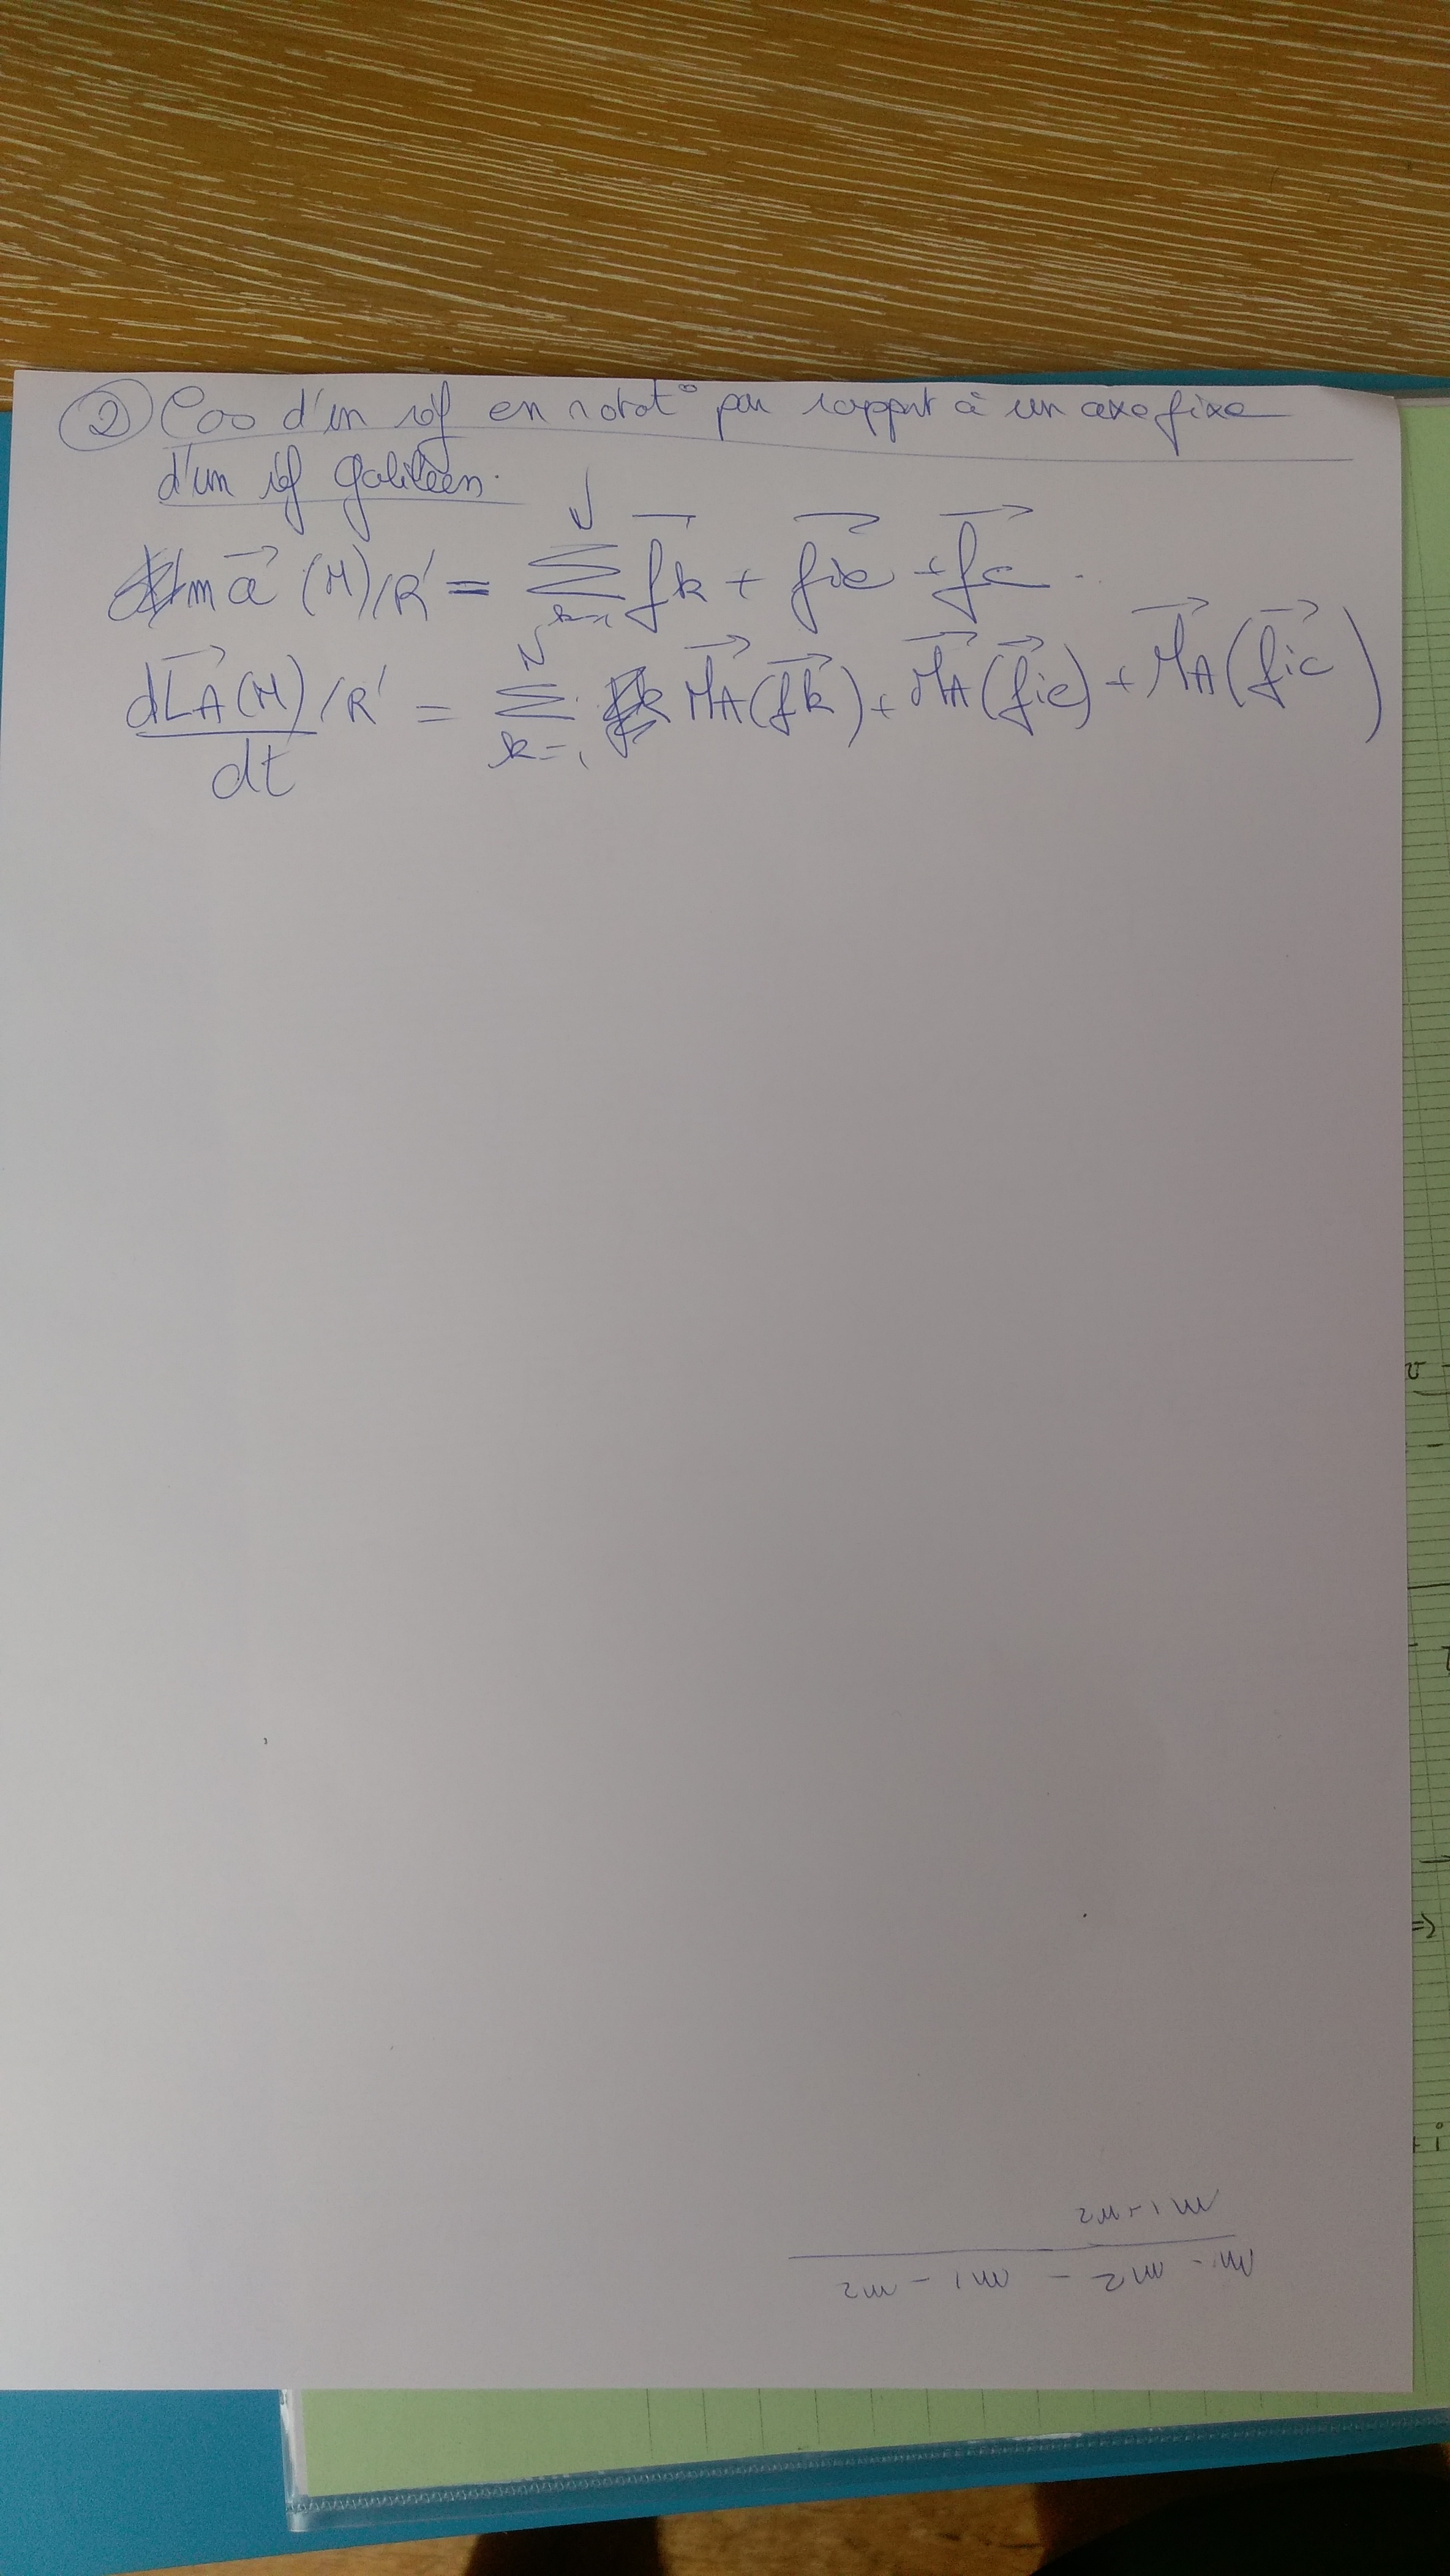 ② Cas d'un réf en rotat° par rapport à un axe fixe
d'un réf galiléen.
m a⃗ (M)/R' = Σ_{k=1}^{N} f⃗k + f⃗ie + f⃗c
dL⃗A(M)/dt /R' = Σ_{k=1}^{N} M⃗A(f⃗k) + M⃗A(f⃗ie) + M⃗A(f⃗ic)
m1 - m2 - m1 - m2
m1 + m2